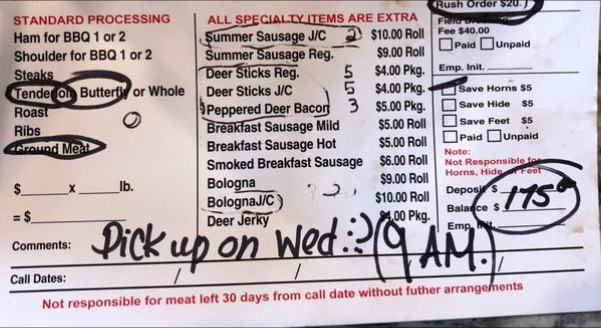 Rush Order $20.
STANDARD PROCESSING
Ham for BBQ 1 or 2
Shoulder for BBQ 1 or 2
Steaks
Tenderloin Butterfly or Whole
Roast
Ribs
Ground Meat
$ x lb.
= $
ALL SPECIALTY ITEMS ARE EXTRA
Summer Sausage J/C 2 $10.00 Roll
Summer Sausage Reg. $9.00 Roll
Deer Sticks Reg. 5 $4.00 Pkg.
Deer Sticks J/C 5 $4.00 Pkg.
Peppered Deer Bacon 3 $5.00 Pkg.
Breakfast Sausage Mild $5.00 Roll
Breakfast Sausage Hot $5.00 Roll
Smoked Breakfast Sausage $6.00 Roll
Bologna $9.00 Roll
BolognaJ/C $10.00 Roll
Deer Jerky .00 Pkg.
Field
Fee $40.00
Paid Unpaid
Emp. Init.
Save Horns $5
Save Hide $5
Save Feet $5
Paid Unpaid
Note:
Not Responsible for
Horns, Hide, or Feet
Deposit $
Balance $ 175
Emp. Init.
Comments: Pick up on Wed (9 AM.)
Call Dates: / /
Not responsible for meat left 30 days from call date without futher arrangements